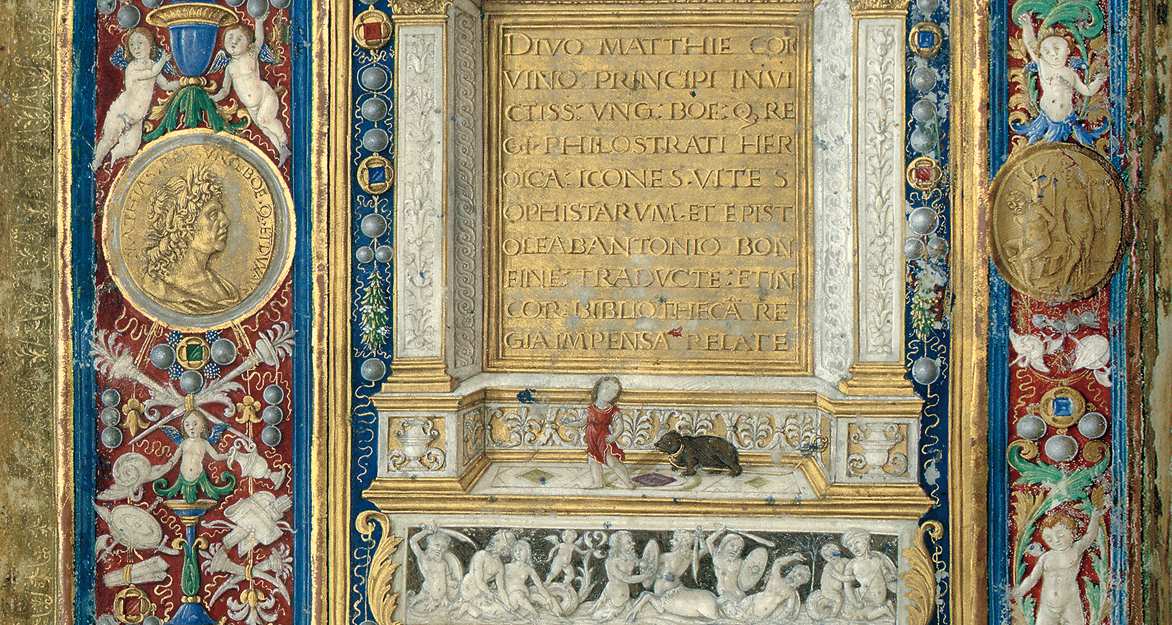 DIVO MATTHIE COR
VINO PRINCIPI INVI
CTISS: VNG: BOE: Q, RE
GI PHILOSTRATI HER
OICA: ICONES. VITE S
OPHISTARVM. ET EPIST
OLE AB ANTONIO BON
FINE: TRADVCTE: ET IN
COR: BIBLIOTHECĀ RE
GIA IMPENSA RELATE
VNG: BOE: Q,